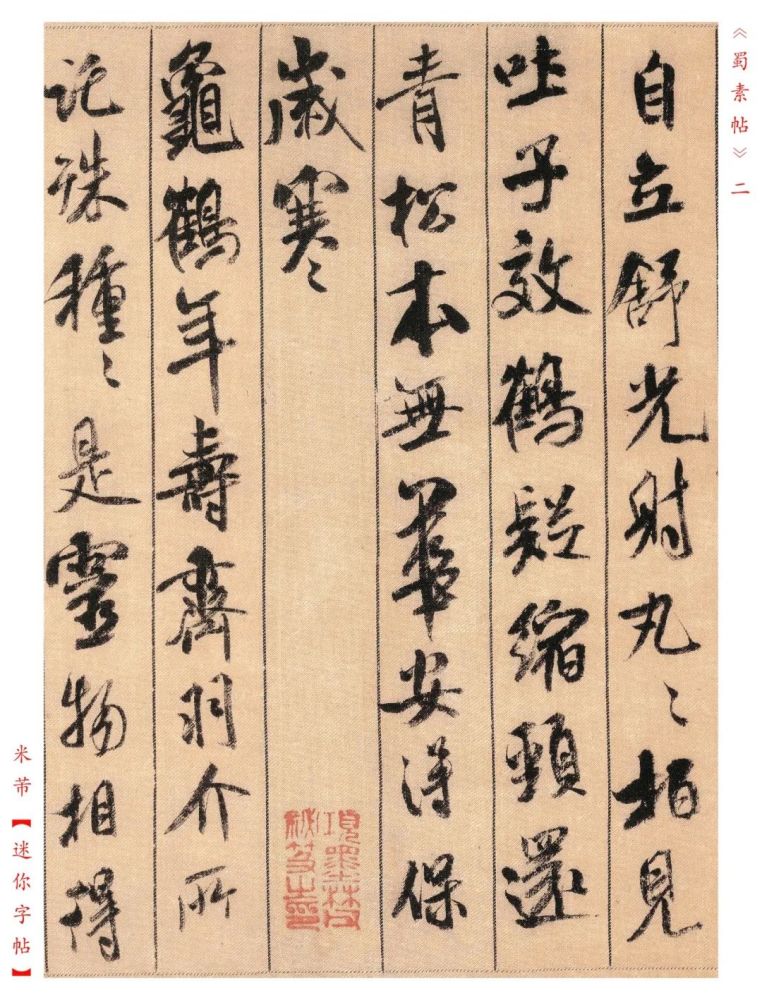 《蜀素帖》二
自立舒光射丸〻柏見
吐子效鶴疑縮頸還
青松本無華安得保
歲寒
項墨林父
祕笈之印
龜鶴年壽齊羽介所
託殊種〻是靈物相得
米芾【迷你字帖】